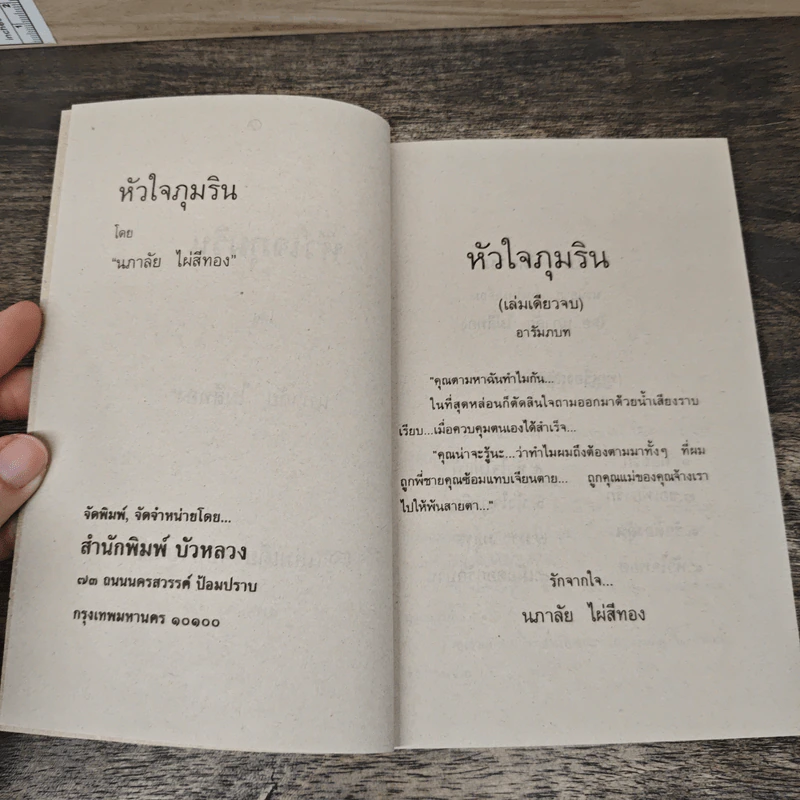 หัวใจภุมริน
โดย
"นภาลัย ไผ่สีทอง"
จัดพิมพ์, จัดจำหน่ายโดย...
สำนักพิมพ์ บัวหลวง
๗๓ ถนนนครสวรรค์ ป้อมปราบ
กรุงเทพมหานคร ๑๐๑๐๐
หัวใจภุมริน
(เล่มเดียวจบ)
อารัมภบท
"คุณตามหาฉันทำไมกัน...
ในที่สุดหล่อนก็ตัดสินใจถามออกมาด้วยน้ำเสียงราบ
เรียบ...เมื่อควบคุมตนเองได้สำเร็จ...
"คุณน่าจะรู้นะ...ว่าทำไมผมถึงต้องตามมาทั้งๆ ที่ผม
ถูกพี่ชายคุณซ้อมแทบเจียนตาย... ถูกคุณแม่ของคุณจ้างเรา
ไปให้พ้นสายตา..."
รักจากใจ...
นภาลัย ไผ่สีทอง